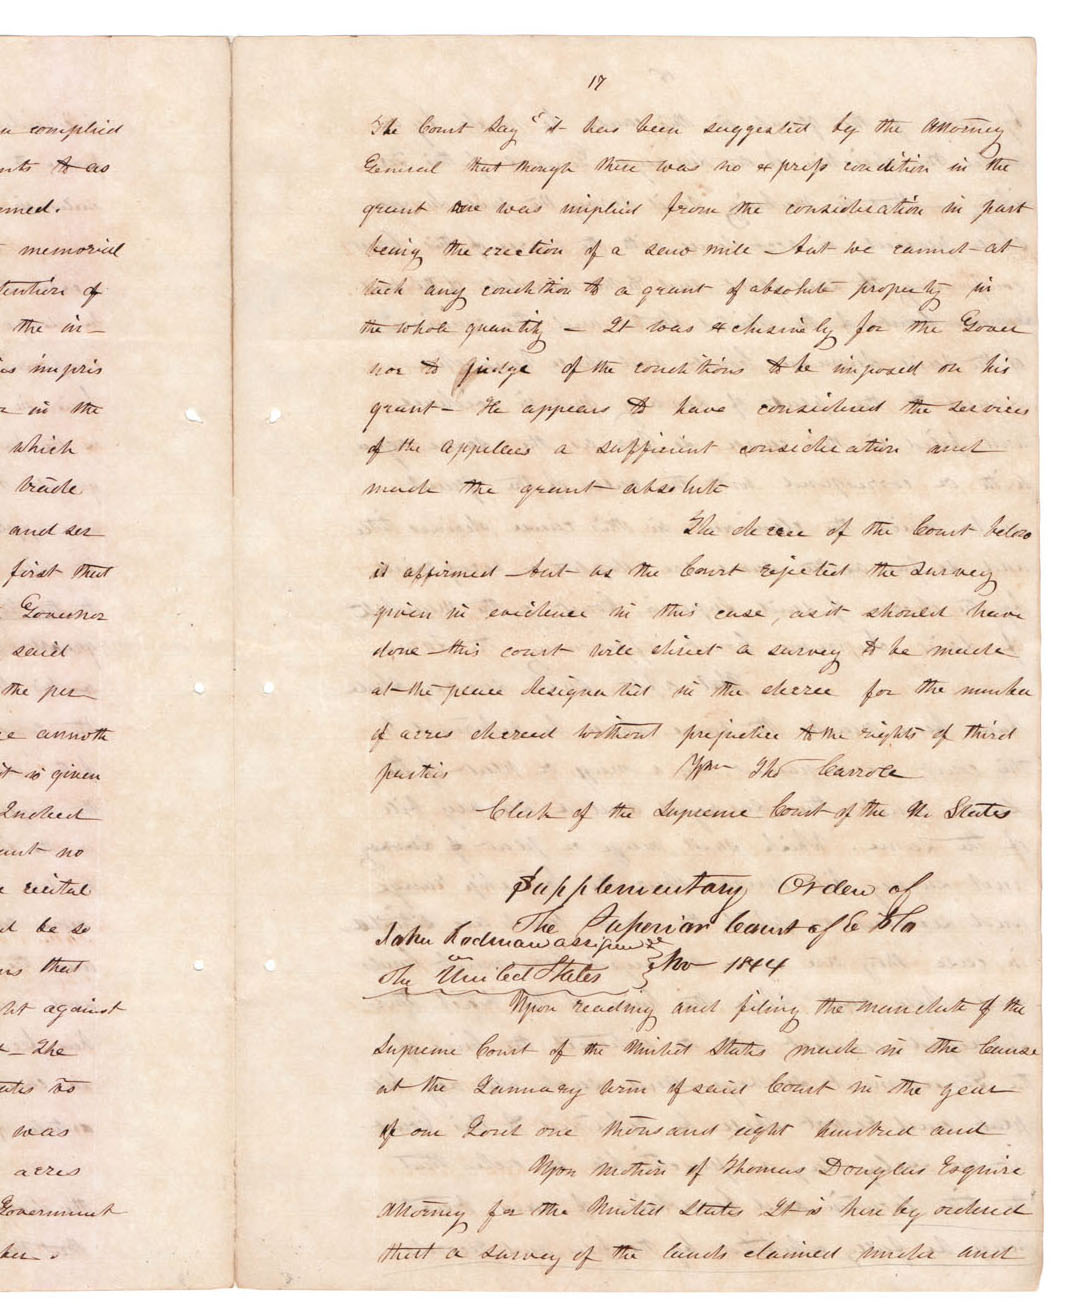 n complied
nts to as
emed.
memorial
tention of
the in-
as impris
in the
which
trade
and ser
first that
Governor
said
the per
e annoth
it is given
Indeed
ant no
recital
d be so
ns that
ht against
- The
ates vs
was
acres
Government
ber.
17
The Court say "it has been suggested by the Attorney
General that though there was no express condition in the
grant one was implied from the consideration in part
being the erection of a saw mill - but we cannot at
tach any condition to a grant of absolute property in
the whole quantity - It was exclusively for the Gover
nor to judge of the conditions to be imposed on his
grant - He appears to have considered the services
of the appellee a sufficient consideration and
made the grant absolute
The decree of the Court below
is affirmed - but as the Court rejected the survey
given in evidence in this case, as it should have
done - this court will direct a survey to be made
at the place designated in the decree for the number
of acres decreed without prejudice to the rights of third
parties Wm Tho Carroll
Clerk of the Supreme Court of the U. States
Supplementary Order of
The Superior Court of E Flo
John Rodman assignee
vs Nov 1844
The United States
Upon reading and filing the mandate of the
Supreme Court of the United States made in the Cause
at the January term of said Court in the year
of our Lord one thousand eight hundred and
Upon motion of Thomas Douglas Esquire
Attorney for the United States It is hereby ordered
that a survey of the lands claimed under and